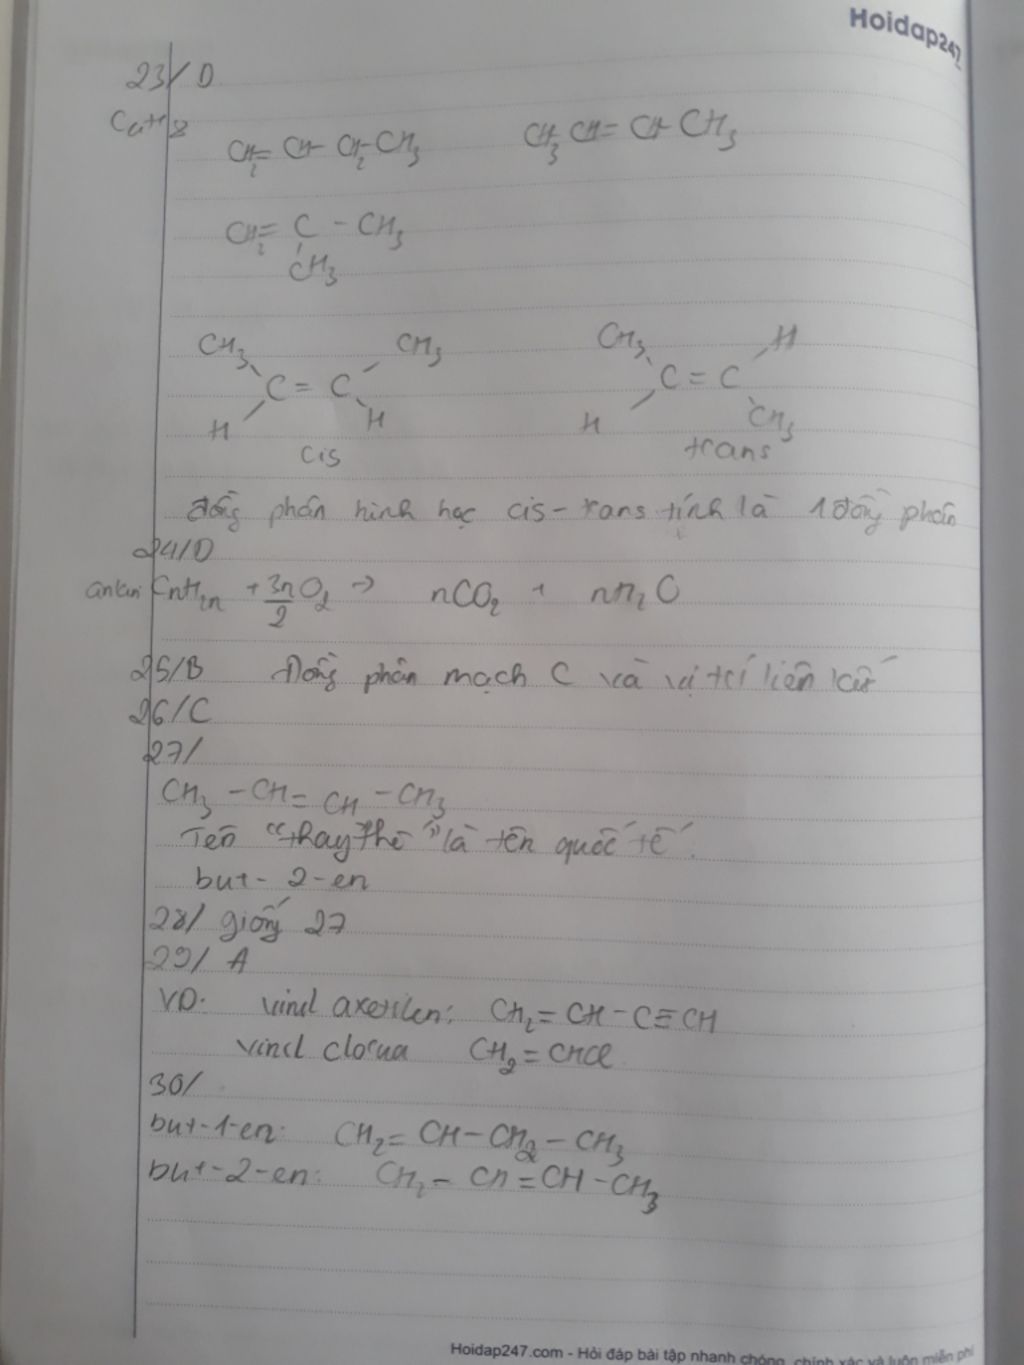 Hoidap247
23/ D
C4H8
CH2= CH- CH2-CH3 CH3 CH= CH CH3
CH2= C - CH3
CH3
CH3 CH3 CH3 H
C = C C = C
H H H CH3
cis trans
đồng phân hình học cis-trans tính là 1 đồng phân
24/D
anken CnH2n + 3n/2 O2 → nCO2 + nH2O
25/B Đồng phân mạch C và vị trí liên kết
26/C
27/
CH3 - CH = CH - CH3
Tên "thay thế" là tên quốc tế.
but- 2-en
28/ giống 27
29/ A
VD: vinyl axetilen: CH2 = CH - C≡CH
vinyl clorua CH2 = CHCl
30/
but-1-en: CH2= CH-CH2-CH3
but-2-en: CH3- CH = CH-CH3
Hoidap247.com - Hỏi đáp bài tập nhanh chóng, chính xác và luôn miễn phí